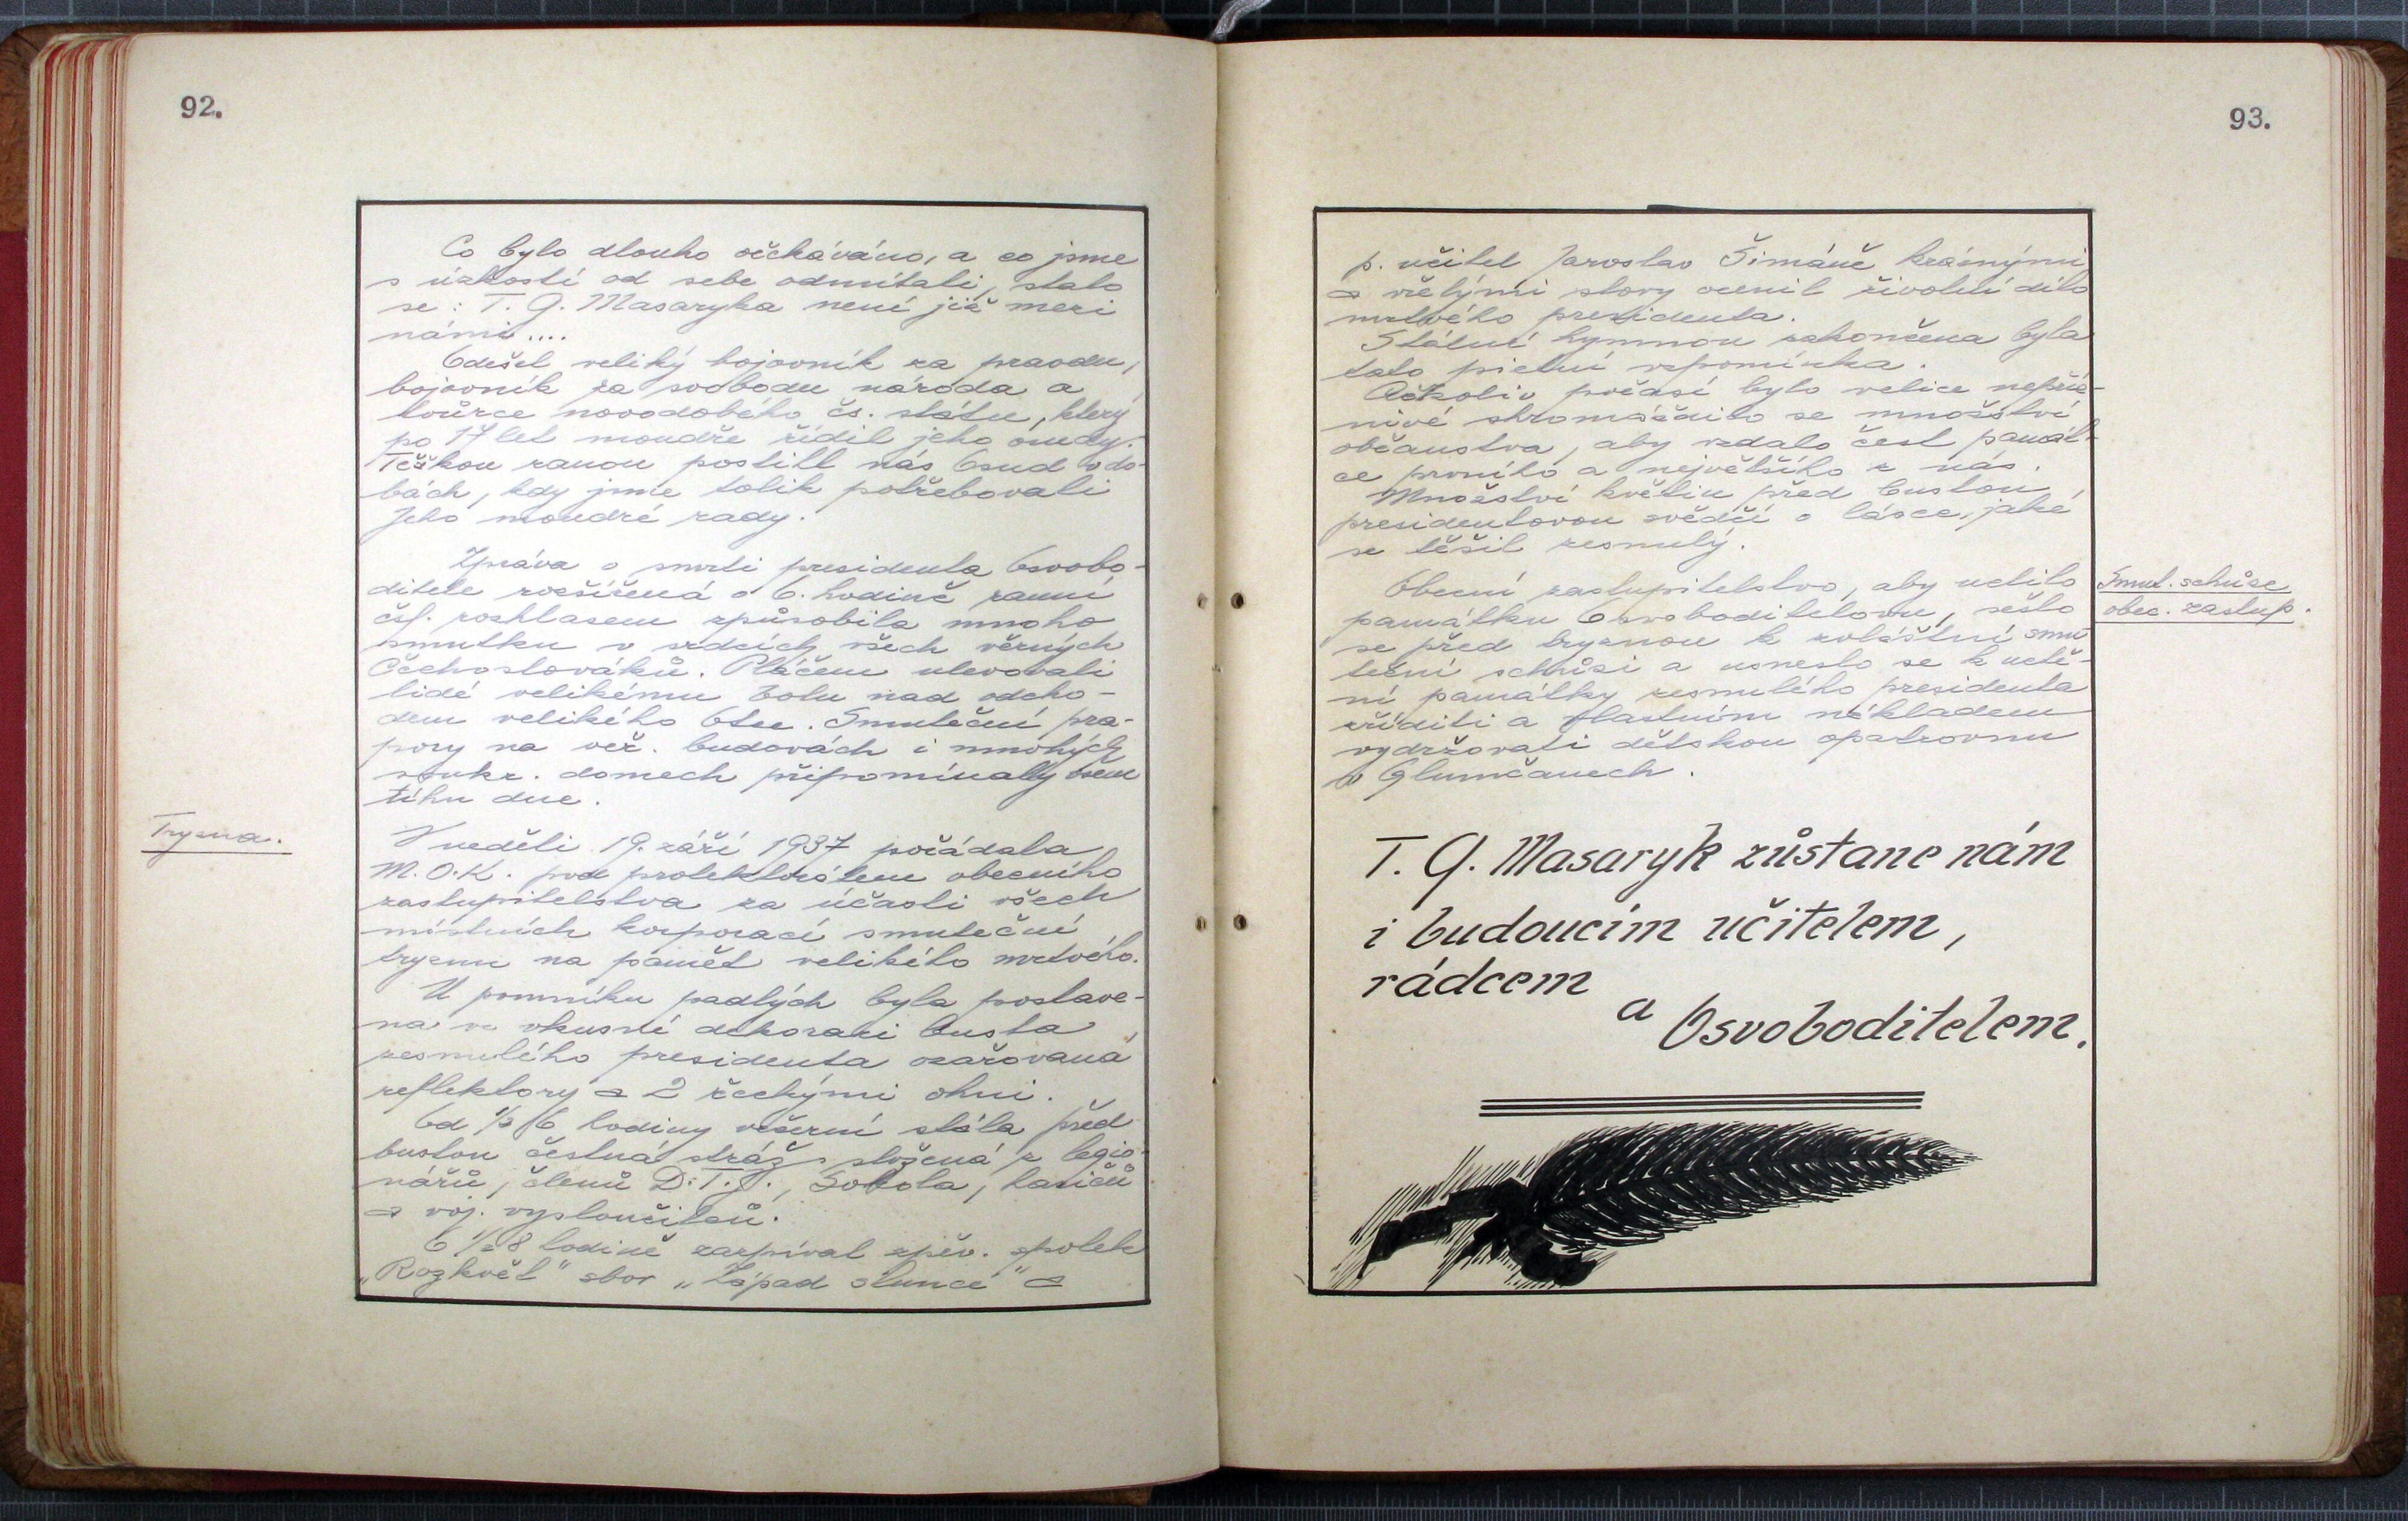 92.
Co bylo dlouho očekáváno, a co jsme
s úzkostí od sebe odmítali, stalo
se: T. G. Masaryka není již mezi
námi....
Odešel veliký bojovník za pravdu,
bojovník za svobodu národa a
tvůrce novodobého čs. státu, který
po 17 let moudře řídil jeho osudy.
Těžkou ranou postihl nás Osud v do-
bách, kdy jsme tolik potřebovali
Jeho moudré rady.
Zpráva o smrti presidenta Osvobo-
ditele rozšířená o 6. hodině ranní
čsl. rozhlasem způsobila mnoho
smutku v srdcích všech věrných
Čechoslováků. Pláčem ulevovali
lidé velikému bolu nad odcho-
dem velikého Otce. Smuteční pra-
pory na veř. budovách i mnohých
soukr. domech připomínaly všem
tíhu dne.
Tryzna.
V neděli 19. září 1937 pořádala
M.O.K. pod protektorátem obecního
zastupitelstva za účasti všech
místních korporací smuteční
tryznu na paměť velikého mrtvého.
U pomníku padlých byla postave-
na ve vkusné dekoraci busta
zesnulého presidenta ozařovaná
reflektory a 2 řeckými ohni.
Od ½ 6 hodiny večerní stála před
bustou čestná stráž složená z legio-
nářů, členů D.T.J., Sokola, hasičů
a voj. vysloužilců.
O ½ 8 hodině zazpíval zpěv. spolek
„Rozkvět" sbor „Západ slunce" a
93.
p. učitel Jaroslav Šimáně krásnými
a vřelými slovy ocenil životní dílo
mrtvého presidenta.
Státní hymnou zakončena byla
tato pietní vzpomínka.
Ačkoliv počasí bylo velice nepříz-
nivé shromáždilo se množství
občanstva, aby vzdalo čest památ-
ce prvního a největšího z nás.
Množství květin před bustou
presidentovou svědčí o lásce, jaké
se těšil zesnulý.
Smut. schůze
obec. zastup.
Obecní zastupitelstvo, aby uctilo
památku Osvoboditelovu, sešlo
se před tryznou k zvláštní smu
teční schůzi a usneslo se k uctě-
ní památky zesnulého presidenta
zříditi a vlastním nákladem
vydržovati dětskou opatrovnu
v Hlumčanech.
T. G. Masaryk zůstane nám
i budoucím učitelem,
rádcem
a
Osvoboditelem.